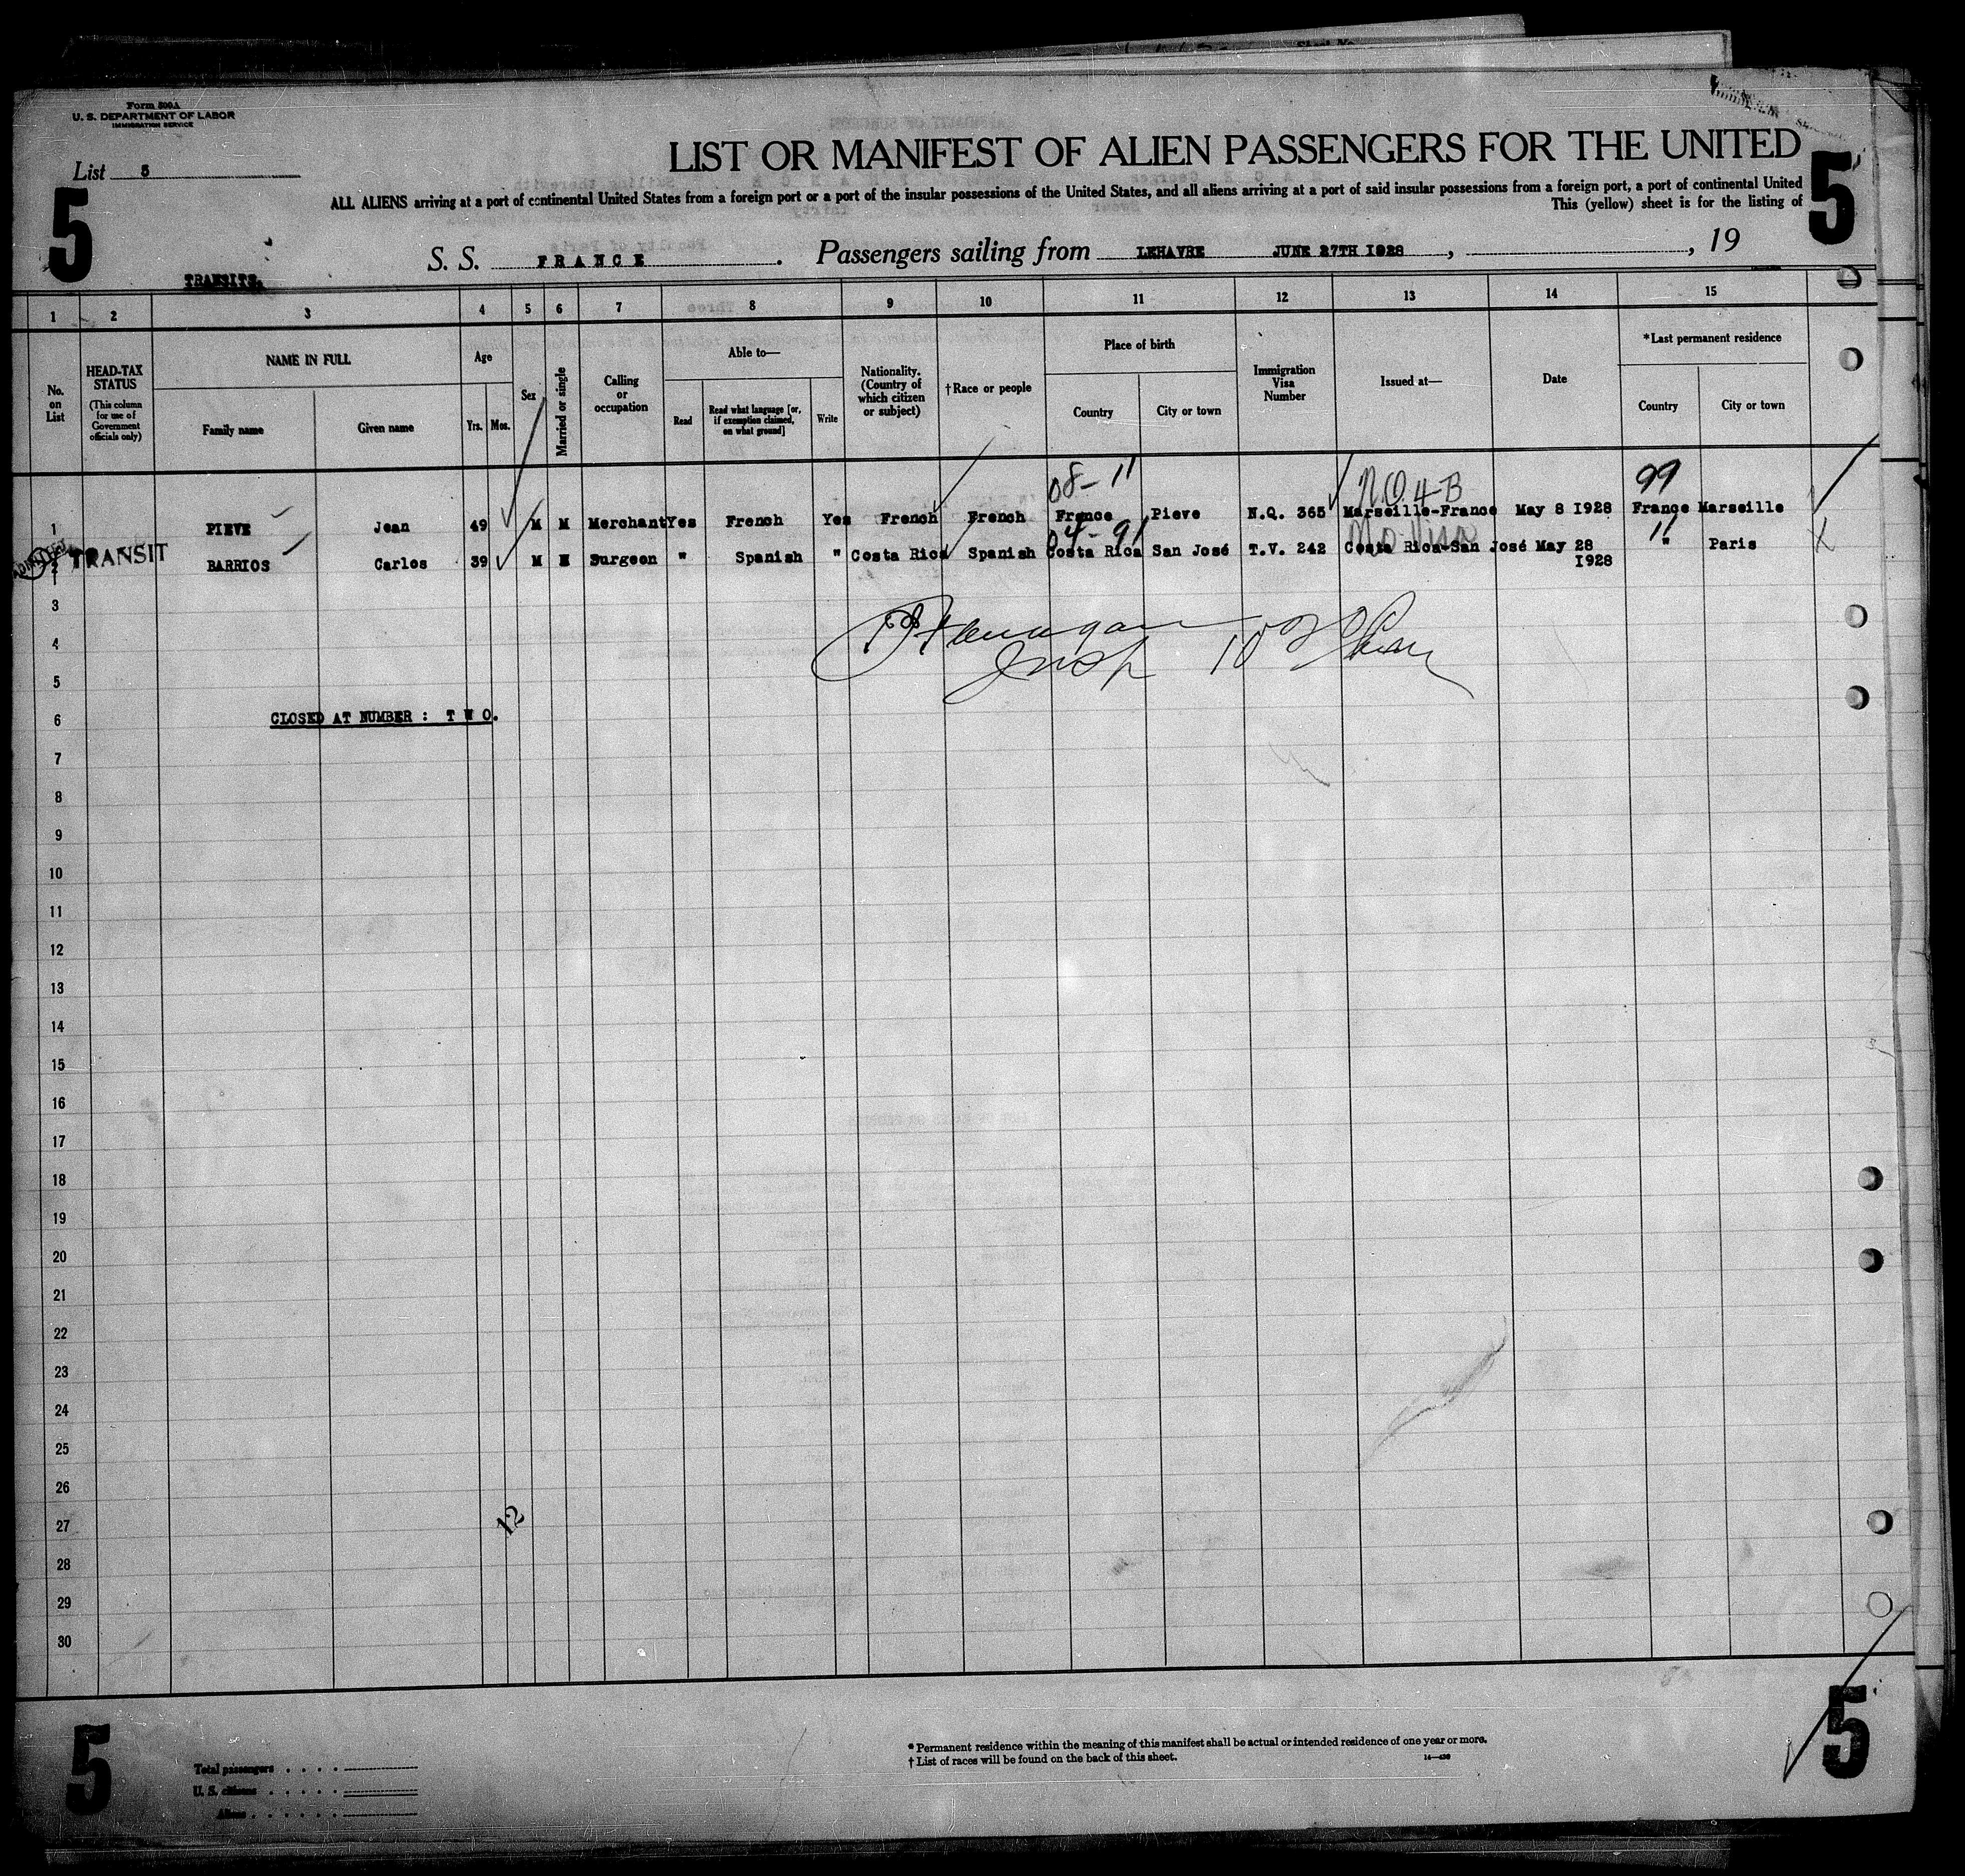 Form 500A
U. S. DEPARTMENT OF LABOR
IMMIGRATION SERVICE
List 5
5
5
LIST OR MANIFEST OF ALIEN PASSENGERS FOR THE UNITED
ALL ALIENS arriving at a port of continental United States from a foreign port or a port of the insular possessions of the United States, and all aliens arriving at a port of said insular possessions from a foreign port, a port of continental United
This (yellow) sheet is for the listing of
S. S. FRANCE. Passengers sailing from LEHAVRE JUNE 27TH I928, , 19
TRANSITS.
1 2 3 4 5 6 7 8 9 10 11 12 13 14 15
No. on List
HEAD-TAX STATUS
(This column for use of Government officials only)
NAME IN FULL
Family name
Given name
Age
Yrs.
Mos.
Sex
Married or single
Calling or occupation
Able to—
Read
Read what language [or, if exemption claimed, on what ground]
Write
Nationality. (Country of which citizen or subject)
†Race or people
Place of birth
Country
City or town
Immigration Visa Number
Issued at—
Date
*Last permanent residence
Country
City or town
08-11 N.Q. 4-B 99
1 PIEVE Jean 49 M M Merchant Yes French Yes French French France Pieve N.Q. 365 Marseille-France May 8 I928 France Marseille
04-91 No Visa 11
ADMITTED TRANSIT
2 BARRIOS Carlos 39 M M Surgeon " Spanish " Costa Rica Spanish Costa Rica San José T.V. 242 Costa Rica-San José May 28 I928 " Paris
3
4 Flanagan
Insp 10
5
6 CLOSED AT NUMBER : T W O.
7
8
9
10
11
12
13
14
15
16
17
18
19
20
21
22
23
24
25
26
27 12
28
29
30
5
5
* Permanent residence within the meaning of this manifest shall be actual or intended residence of one year or more.
† List of races will be found on the back of this sheet.
14—430
Total passengers
U. S. citizens
Aliens